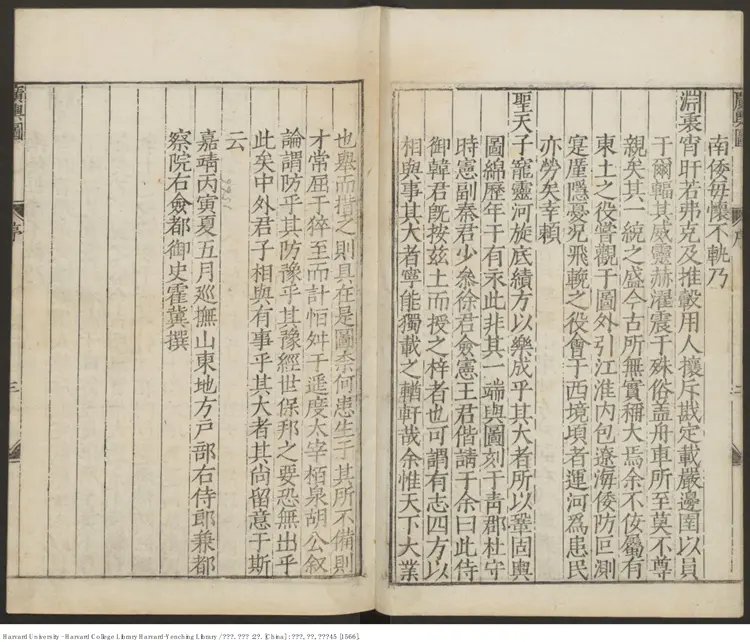 廣輿圖
序
二
南倭毎懷不軌乃
淵衷宵旰若弗克及推轂用人攘斥戡定載嚴邊圉以員
于爾輻其威靈赫濯震于殊俗蓋舟車所至莫不尊
親矣其一統之盛今古所無實稱大焉余不佞屬有
東土之役嘗觀于圖外引江淮内包遼海倭防叵測
寔厪隱憂況飛輓之役會于西境頃者運河爲患民
亦勞矣幸賴
聖天子寵靈河旋底績方以樂成乎其大者所以鞏固輿
圖綿歷年于有永此非其一端與圖刻于青郡杜守
時憲副秦君少叅徐君僉憲王君偕請于余曰此侍
御韓君旣按兹土而授之梓者也可謂有志四方以
相與事其大者寧能獨載之輶軒哉余惟天下大業
也舉而措之則具在是圖柰何患生于其所不備則
才常屈于猝至而計恒舛于遥度太宰栢泉胡公叙
論謂防乎其防豫乎其豫經世保邦之要恐無出乎
此矣中外君子相與有事乎其大者其尚留意于斯
云
嘉靖丙寅夏五月廵撫山東地方戸部右侍郎兼都
察院右僉都御史霍冀撰
廣輿圖
序
三
Harvard University - Harvard College Library Harvard-Yenching Library / ???. ??? :2?. [China] : ???, ??, ???45 [1566].